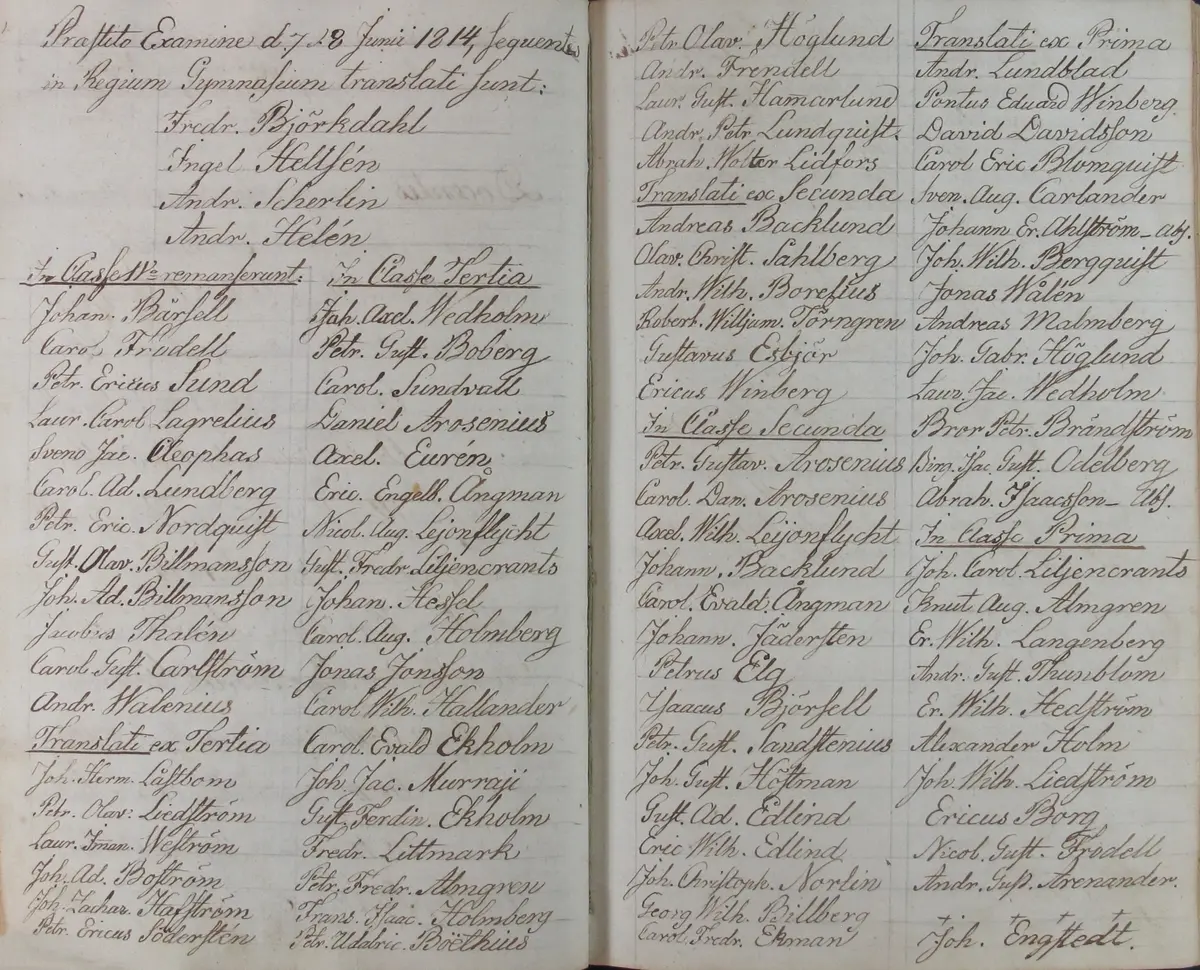 Præstito Examine d. 7 & 8 Junii 1814, sequentes
in Regium Gymnasium translati sunt:
Fredr. Björkdahl
Ingel Hellsén
Andr. Scherlin
Andr. Helén
In Classe IV:ta remanserunt:
Johan. Bärsell
Carol Frodell
Petr. Ericus Sund
Laur. Carol Lagrelius
Sveno Jac. Cleophas
Carol. Ad. Lundberg
Petr. Eric. Nordquist
Gust. Olav. Billmansson
Joh. Ad. Billmansson
Jacobus Thalén
Carol. Gust. Carlström
Andr. Walenius
Translati ex Tertia
Joh. Herm. Låstbom
Petr. Olav: Liedström
Laur. Iman. Weström
Joh. Ad. Boström
Joh. Zachar. Hafström
Petr. Ericus Södersten
In Classe Tertia
Joh. Axel. Wedholm
Petr. Gust. Boberg
Carol. Sundvall
Daniel Arosenius
Axel. Eurén
Eric. Engelb. Ångman
Nicol. Aug. Lejonflycht
Gust. Fredr Liljencrants
Johan. Hessel
Carol. Aug. Holmberg
Jonas Jonsson
Carol Wilh. Hallander
Carol. Evald Ekholm
Joh. Jac. Murraji
Gust. Ferdin. Ekholm
Fredr. Littmark
Petr. Fredr. Almgren
Frans. Isaac. Holmberg
Petr. Udalric. Boëthius
Petr. Olav. Höglund
Andr. Frendell
Laur. Gust. Hamarlund
Andr. Petr. Lundquist.
Abrah. Wolter Lidfors
Translati ex Secunda
Andreas Backlund
Olav. Christ. Sahlberg
Andr. Wilh. Borelius
Robert. Willjam. Törngren
Gustavus Esbjör
Ericus Winberg
In Classe Secunda
Petr. Gustav. Arosenius
Carol. Dan. Arosenius
Axel. Wilh. Leijonflycht
Johann. Backlund
Carol. Evald. Ångman
Johann. Jädersten
Petrus Elg
Ysaacus Björsell
Petr. Gust. Sandstenius
Joh. Gust. Höffman
Gust. Ad. Edlind
Eric Wilh. Edlind
Joh. Christoph. Norlin
Georg Wilh. Billberg
Carol. Fredr. Ekman
Translati ex Prima
Andr. Lundblad
Pontus Eduard Winberg.
David Davidsson
Carol Eric Blomquist
Sven. Aug. Carlander
Johann Er. Ahlström - abs.
Joh. Wilh. Bergquist
Jonas Wålén
Andreas Malmberg
Joh. Gabr. Höglund
Laur. Jac. Wedholm
Bror Petr. Brändström
Birg. Isac. Gust. Odelberg
Abrah. Isaacsson - abs.
In Classe Prima
Joh. Carol. Liljencrants
Knut Aug. Almgren
Er. Wilh. Langenberg
Andr. Gust. Thunblom
Er. Wilh. Hedström
Alexander Holm
Joh. Wilh. Liedström
Ericus Borg
Nicol. Gust. Frodell
Andr. Gust. Arenander.
Joh. Engstedt.